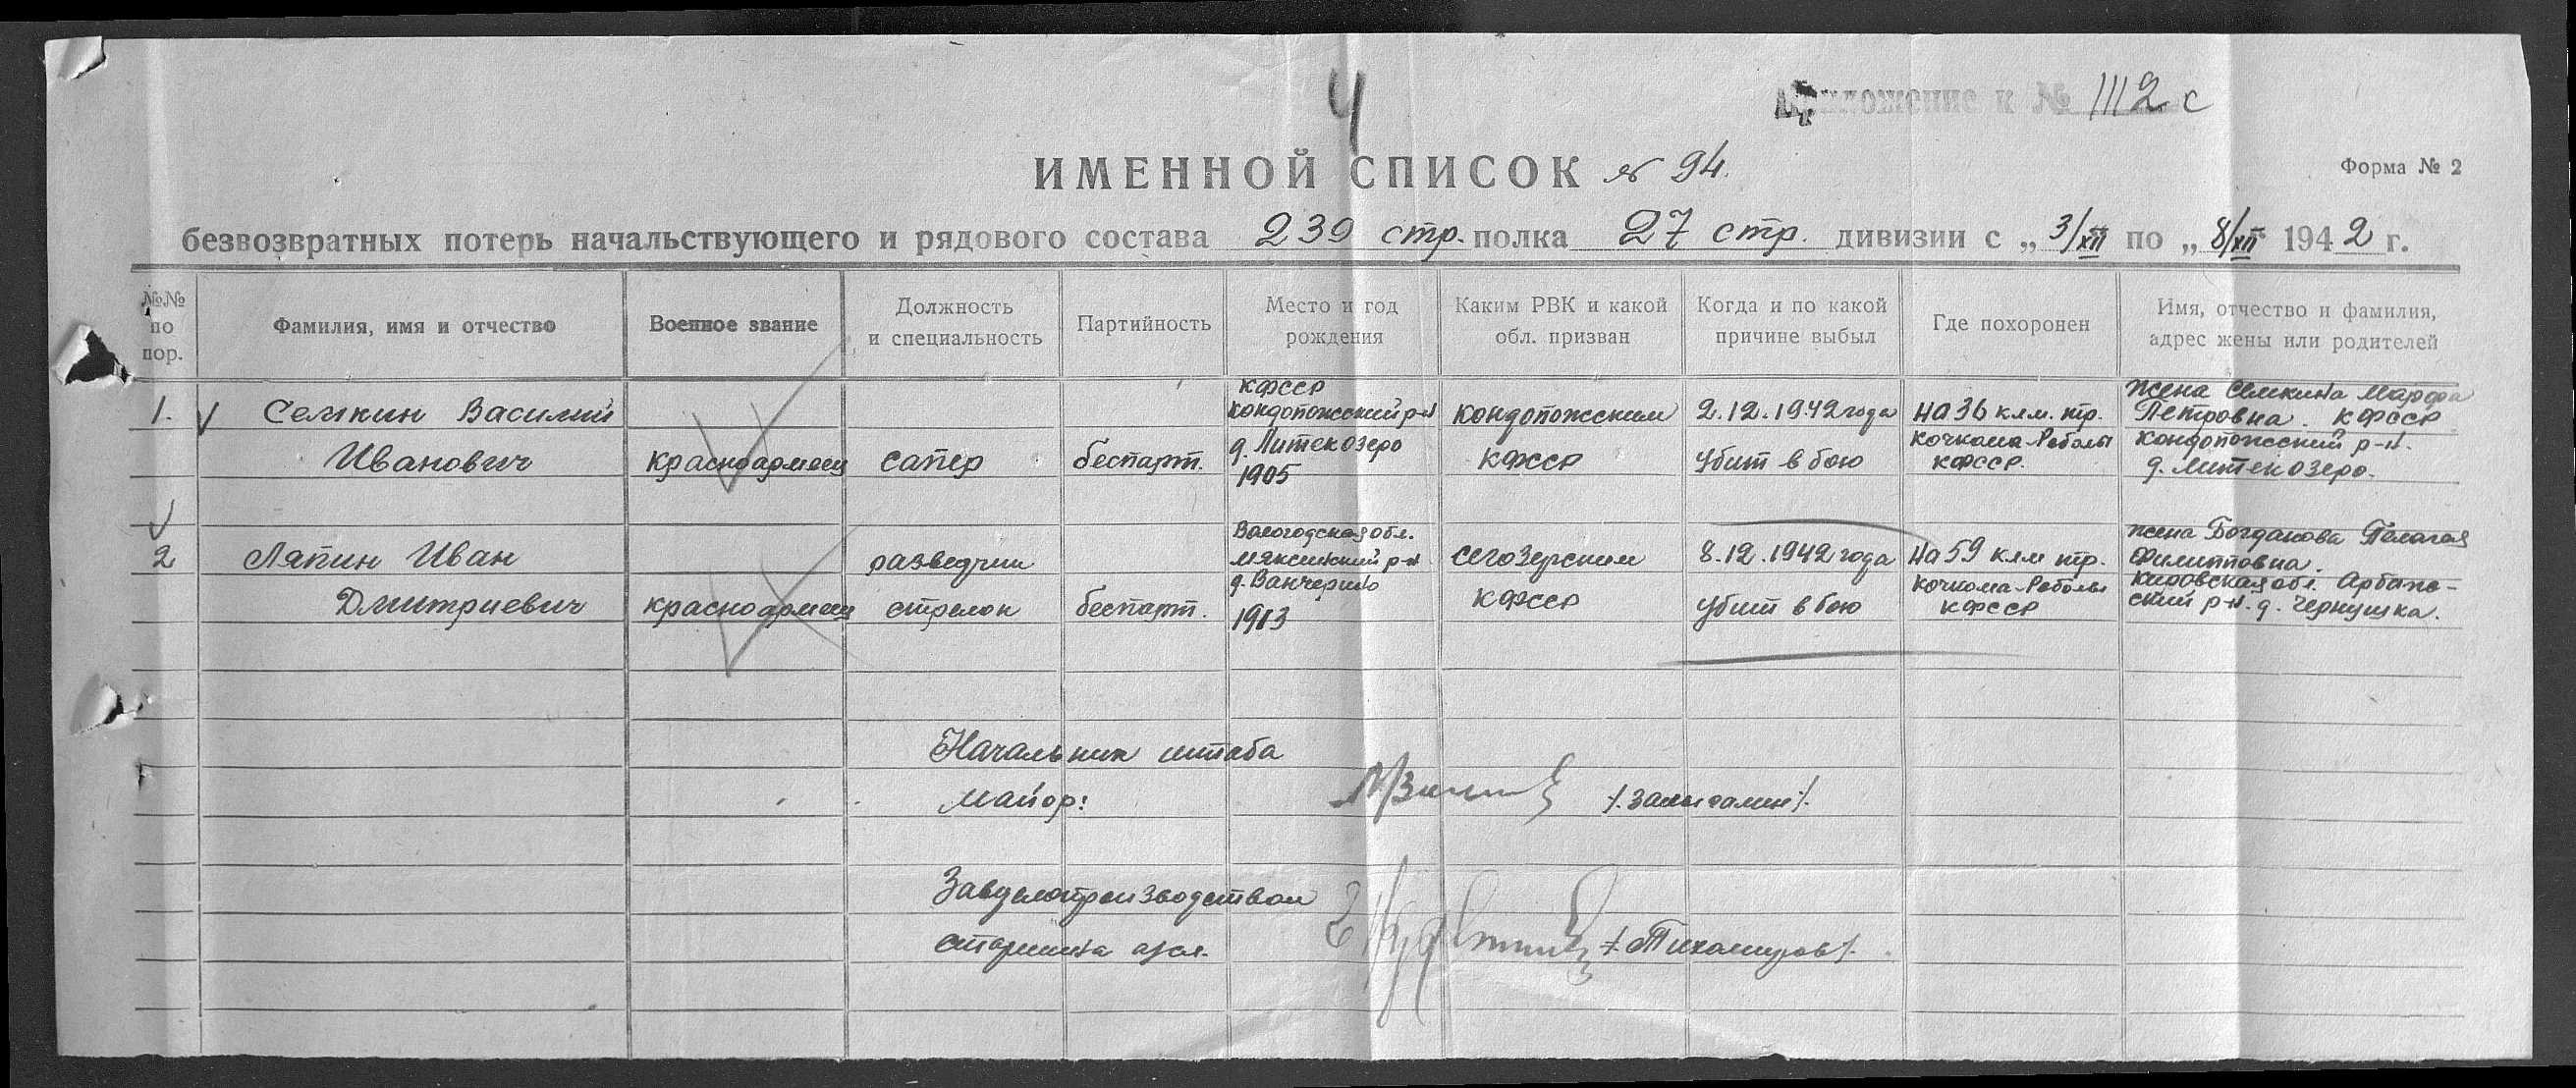 4
Приложение к № 1112 с
ИМЕННОЙ СПИСОК № 94.
Форма № 2
безвозвратных потерь начальствующего и рядового состава 239 стр. полка 27 стр. дивизии с „ 3/XII по „ 8/XII 1942 г.
№№ по пор.
Фамилия, имя и отчество
Военное звание
Должность и специальность
Партийность
Место и год рождения
Каким РВК и какой обл. призван
Когда и по какой причине выбыл
Где похоронен
Имя, отчество и фамилия, адрес жены или родителей
1.
Семкин Василий
Иванович
красноармеец
сапер
беспарт.
КФССР
Кондопожский р-н
д. Литекозеро
1905
Кондопожским
КФССР
2.12.1942 года
Убит в бою
На 36 клм. тр.
Кочкома-Реболы
КФССР.
Жена Семкина Марфа
Петровна. КФССР
Кондопожский р-н.
д. Литекозеро.
2
Ляпин Иван
Дмитриевич
красноармеец
разведчик
стрелок
беспарт.
Вологодская обл.
Мяксинский р-н
д. Ванчерино
1913
Сегозерским
КФССР
8.12.1942 года
Убит в бою
На 59 клм тр.
Кочкома-Реболы
КФССР
Жена Богданова Пелагея
Филипповна.
Кировская обл. Арбаж-
ский р-н. д. Чернушка.
Начальник штаба
Майор:
Завделопроизводством
старшина а/сл.
/Тихомиров/.